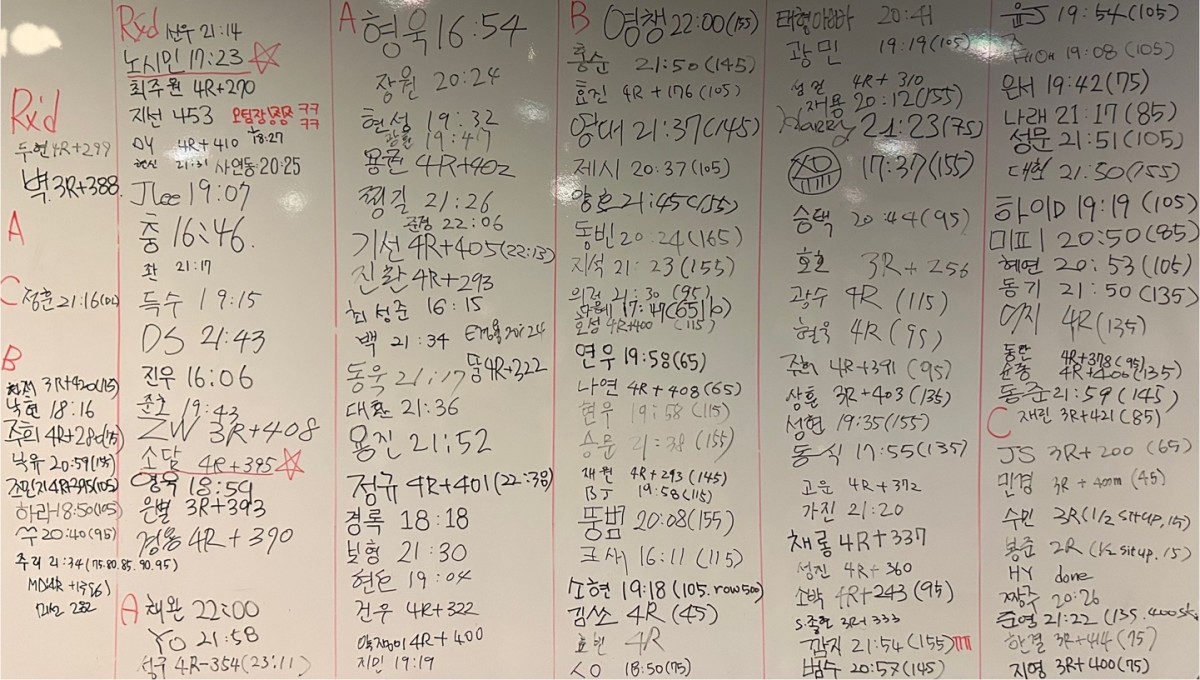 Rx'd
두현 4R+299
벽. 3R+388.
A
C 정훈 21:16
B
3R+420(115)
낙현 18:16
조희 4R+28
낙유 20:59
조민지 4R+395(105)
하라 18:50(105)
20:40(95)
주리 21:34(75.80.85.90.95)
MD 4R
Rxd 선우 21:14
노시민 17:23
최주원 4R+270
지선 453 ㅋㅋ
ㅋㅋ
DY 4R+410 18:27
21:31 사연동 20:25
JLee 19:07
충 16:46.
좌 21:17
득수 19:15
DS 21:43
진우 16:06
준호 19:43
ZW 3R+408
소담 4R+395
영욱 18:59
은별 3R+393
경용 4R+390
A 채완 22:00
YO 21:58
성구 4R-354(23:11)
A 형욱 16:54
장원 20:24
현성 19:32
19:47
용균 4R+402
정길 21:26
준정 22:06
기선 4R+405(22:13)
진환 4R+293
최성준 16:15
백 21:34
동욱 21:17 뚱 4R+322
대환 21:36
용진 21:52
정규 4R+401(22:38)
경록 18:18
보형 21:30
현은 19:04
건우 4R+322
4R+400
지민 19:19
B 영챙 22:00(155)
홍순 21:50(145)
효진 4R+176(105)
양대 21:37(145)
제시 20:37(105)
양호 21:45(155)
동빈 20:24(165)
지석 21:23(155)
의정 21:30(95)
17:47(65)lb
호성 4R+400 (115)
연우 19:58(65)
나연 4R+408(65)
현우 19:58(115)
승문 21:38(155)
재원 4R+293(145)
BJ 19:58(115)
뚱범 20:08(155)
크새 16:11(115)
소현 19:18(105.row500)
김쏘 4R(45)
효빈 4R
ㅅO 18:50(75)
태형아빠 20:41
광민 19:19(105)
성현 4R+310
재용 20:12(155)
Harry 21:23(75)
XO 17:37(155)
승택 20:44(95)
호찬 3R+256
광수 4R(115)
현욱 4R(95)
주희 4R+391(95)
상훈 3R+403(135)
성현 19:35(155)
동식 17:55(135)
고운 4R+372
가진 21:20
채롱 4R+337
성진 4R+360
소박 4R+243(95)
S.종현 3R+333
깜지 21:54(155)
범수 20:57(145)
윤J 19:54(105)
19:08(105)
완서 19:42(75)
나래 21:17(85)
성문 21:51(105)
대현 21:50(155)
하이D 19:19(105)
미피 1 20:50(85)
혜연 20:53(105)
동기 21:50(135)
여지 4R(135)
동환 4R+378(95)
윤종 4R+406(135)
동준 21:59(145)
C 재린 3R+421(85)
JS 3R+200(65)
민경 3R+400m(45)
수민 3R(1/2 situp,15)
봉준 2R(1/2 situp.15)
HY done
짱구 20:26
준영 21:22(135.400sk.
한결 3R+414(75)
지영 3R+400(75)